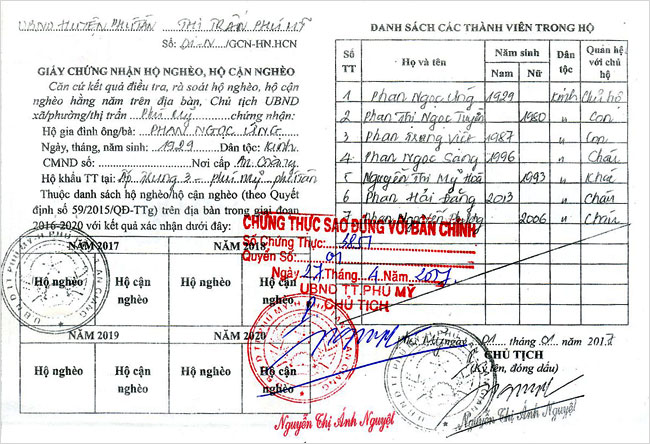 UBND HUYỆN PHÚ TÂN THỊ TRẤN PHÚ MỸ
Số: 01-N /GCN-HN.HCN
GIẤY CHỨNG NHẬN HỘ NGHÈO, HỘ CẬN NGHÈO
Căn cứ kết quả điều tra, rà soát hộ nghèo, hộ cận
nghèo hằng năm trên địa bàn, Chủ tịch UBND
xã/phường/thị trấn Phú Mỹ chứng nhận:
Hộ gia đình ông/bà: PHAN NGỌC
Ngày, tháng, năm sinh: 1929 Dân tộc: Kinh
CMND số: Nơi cấp An Giang
Hộ khẩu TT tại: Ấp Thượng 3 - Phú Mỹ - Phú Tân
Thuộc danh sách hộ nghèo/hộ cận nghèo (theo Quyết
định số 59/2015/QĐ-TTg) trên địa bàn trong giai đoạn
2016-2020 với kết quả xác nhận dưới đây:
NĂM 2017 NĂM 2018
Hộ nghèo Hộ cận nghèo Hộ nghèo Hộ cận nghèo
NĂM 2019 NĂM 2020
Hộ nghèo Hộ cận nghèo Hộ nghèo Hộ cận nghèo
CHỨNG THỰC SAO ĐÚNG VỚI BẢN CHÍNH
Số Chứng Thực: 3851
Quyển Số: 01
Ngày 27 Tháng 4 Năm 2017
UBND TT.PHÚ MỸ
CHỦ TỊCH
Nguyễn Thị Ánh Nguyệt
DANH SÁCH CÁC THÀNH VIÊN TRONG HỘ
Số TT Họ và tên Năm sinh Nam Nữ Dân tộc Quan hệ với chủ hộ
1 Phan Ngọc 1929 Kinh Chủ hộ
2 Phan Thị Ngọc Tuyền 1980 " Con
3 Phan Trung Việt 1987 " Con
4 Phan Ngọc Sang 1996 " Cháu
5 Nguyễn Thị Mỹ Hoa 1993 "
6 Phan Hải Đăng 2013 " Cháu
7 Phan Nguyễn 2006 " Cháu
Phú Mỹ ngày 01 tháng 01 năm 2017
CHỦ TỊCH
(Ký tên, đóng dấu)
Nguyễn Thị Ánh Nguyệt